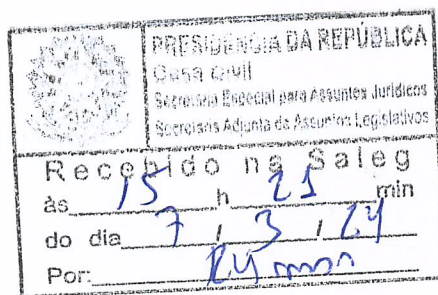 PRESIDENCIA DA REPÚBLICA
Casa Civil
Secretaria Especial para Assuntos Jurídicos
Secretaria Adjunta de Assuntos Legislativos
Recebido na Saleg
às 15 h 21 min
do dia 7 / 3 / 24
Por: